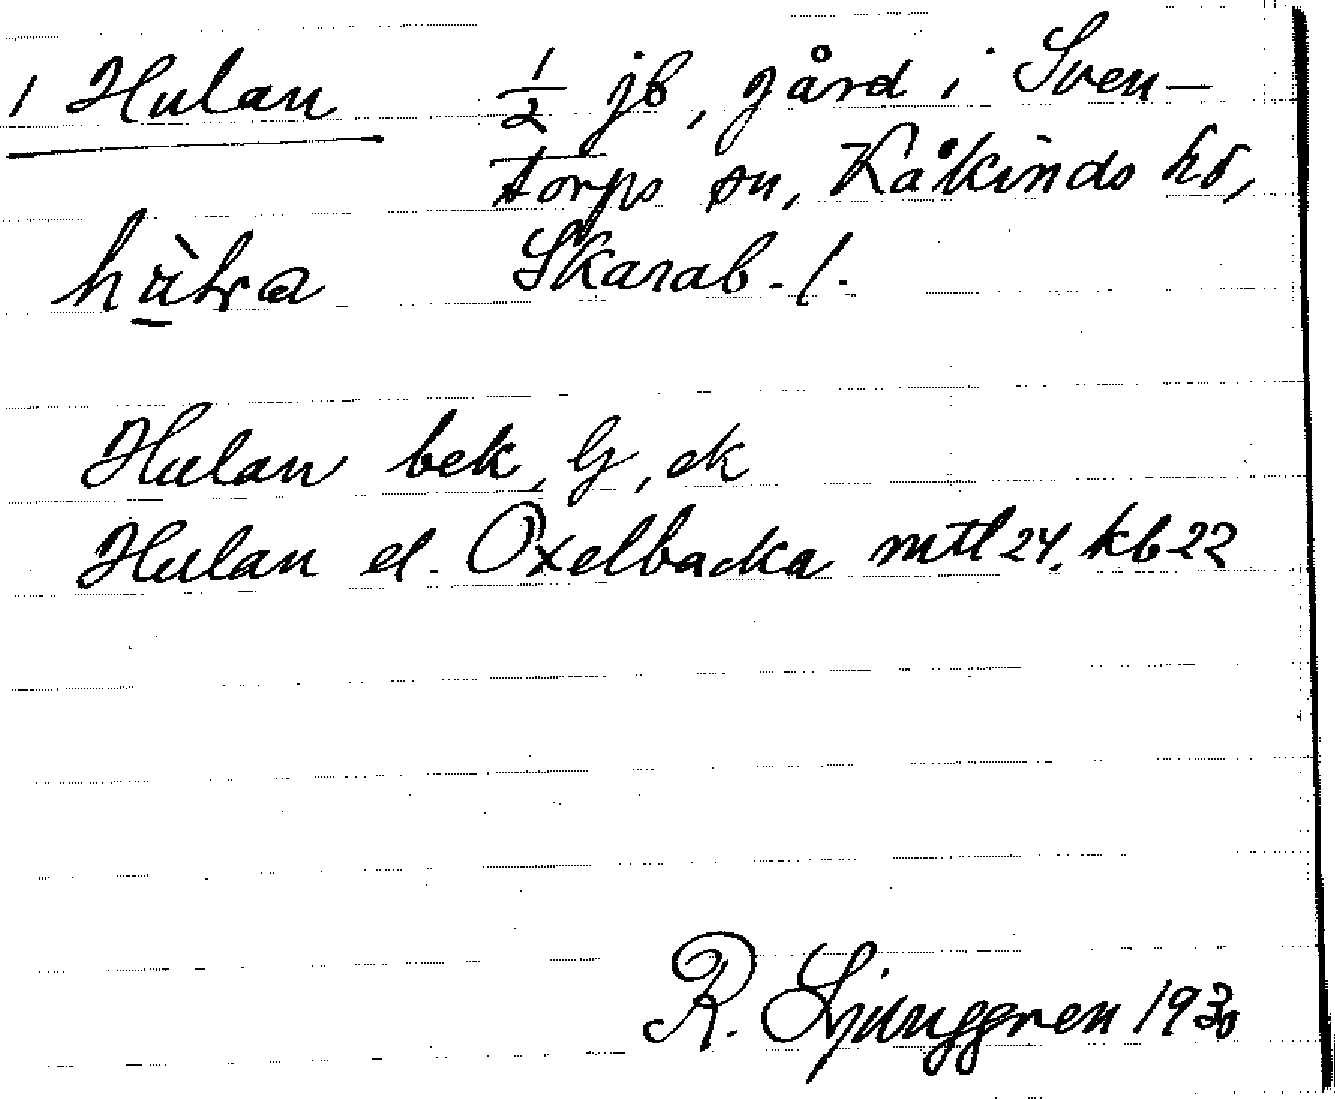 1 Hulan 1/2 jb, gård i Sven-
torps sn, Kåkinds hd,
Skarab. l.
Hulan bek, G, ek
Hulan el. Oxelbacka mtl 24, kb 22
R. Ljunggren 1930